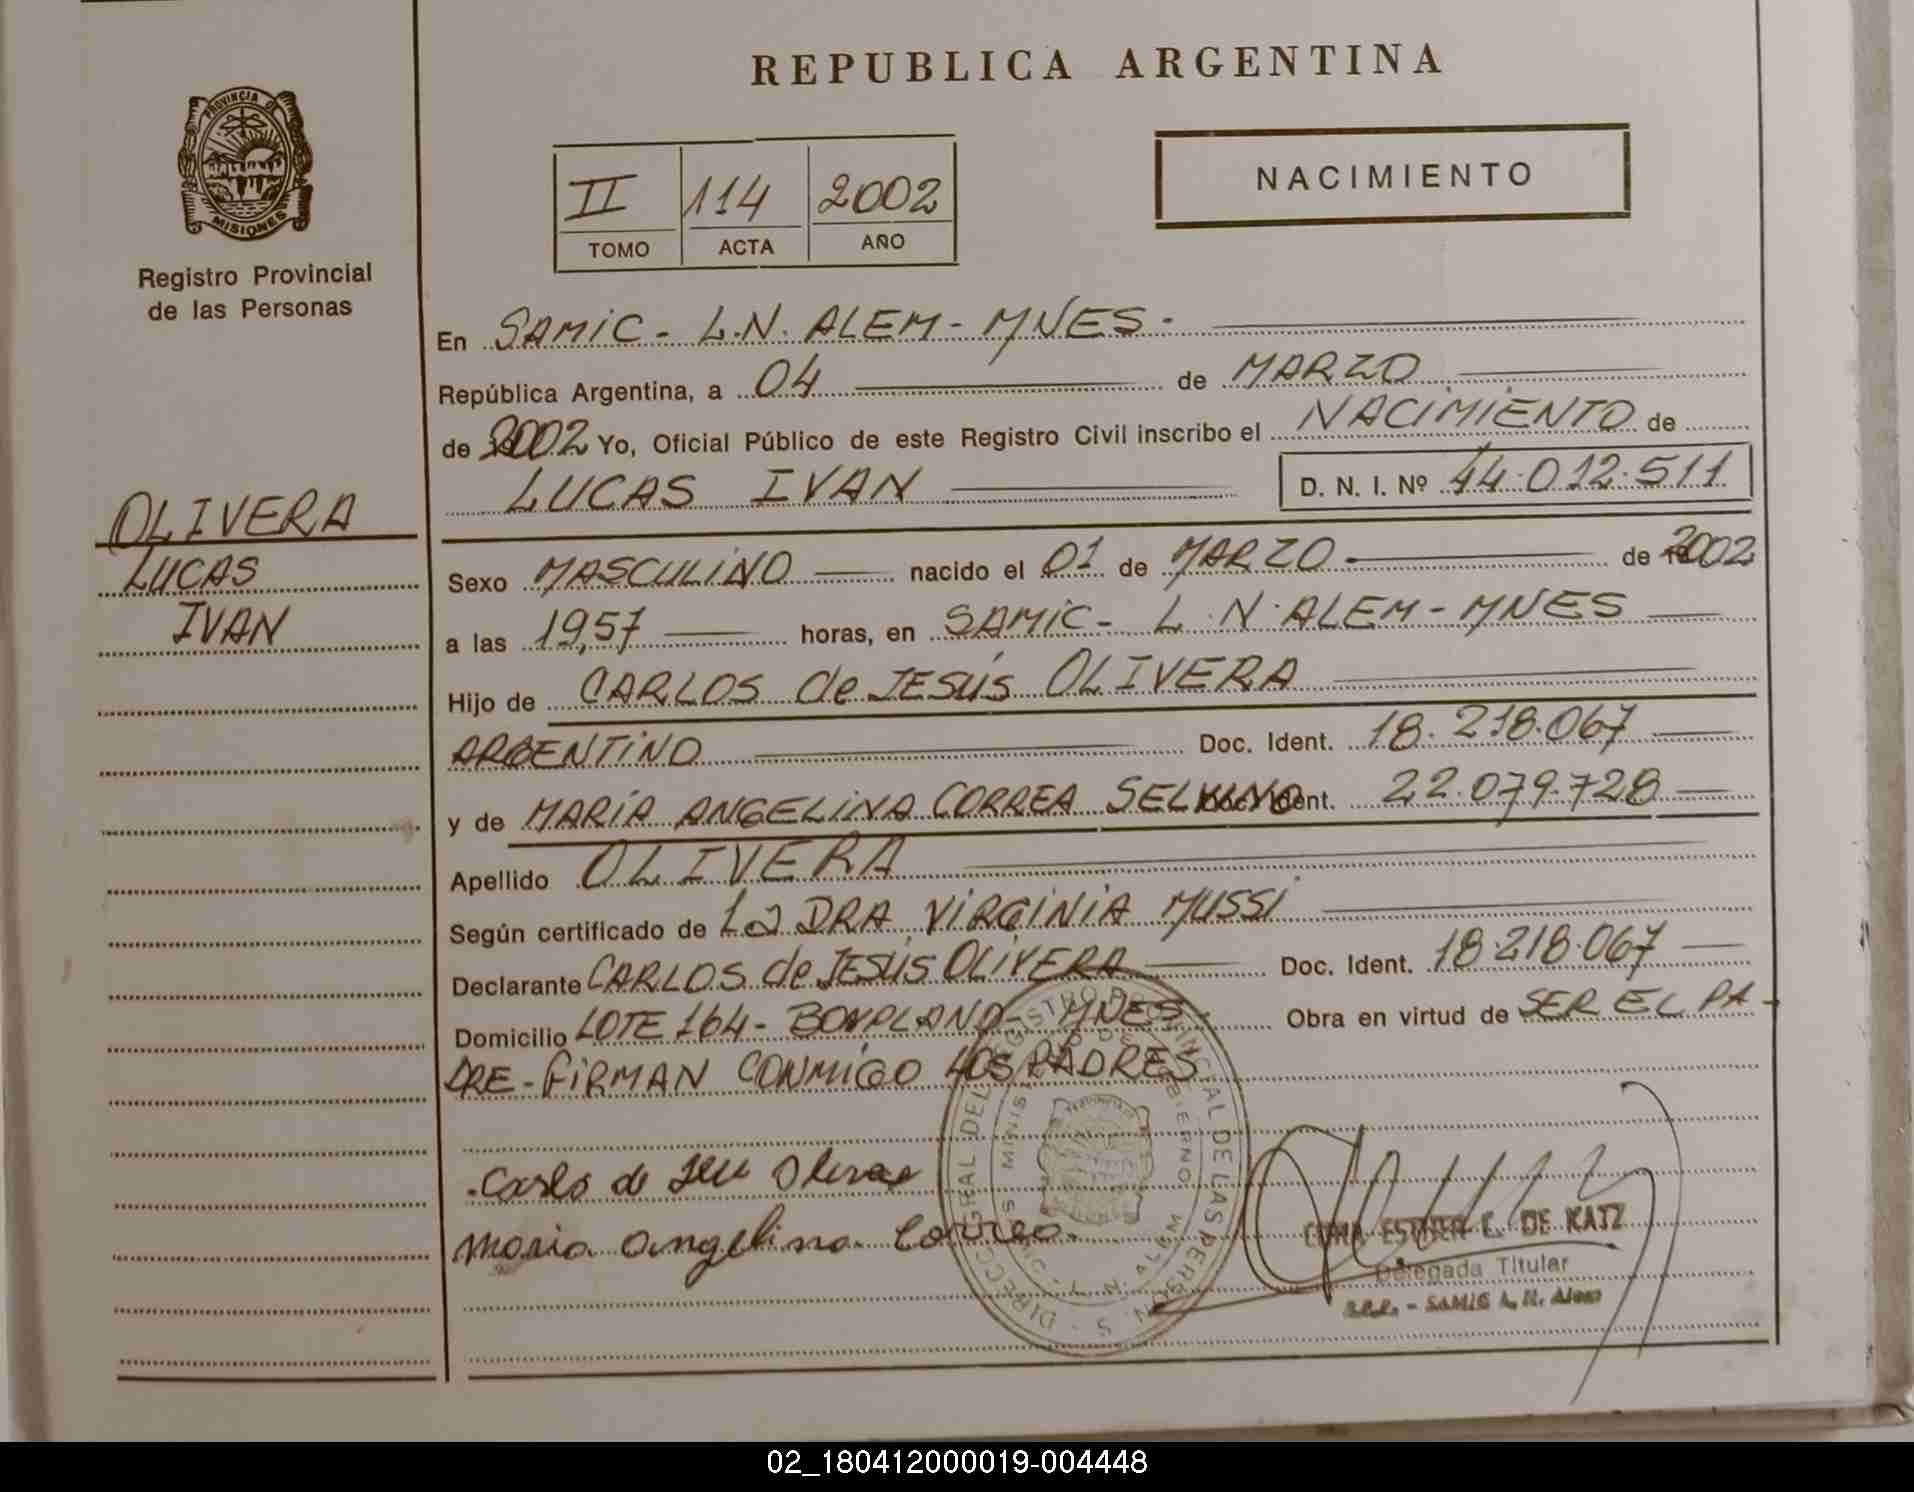 REPUBLICA ARGENTINA
PROVINCIA DE
MISIONES
Registro Provincial
de las Personas
OLIVERA
LUCAS
IVAN
II 114 2002
TOMO ACTA AÑO
NACIMIENTO
En SAMIC - L.N. ALEM - MNES -
República Argentina, a 04 de MARZO
de 2002 Yo, Oficial Público de este Registro Civil inscribo el NACIMIENTO de
LUCAS IVAN D. N. I. Nº 44.012.511
Sexo MASCULINO nacido el 01 de MARZO de 2002
a las 19,57 horas, en SAMIC - L.N. ALEM - MNES
Hijo de CARLOS de JESÚS OLIVERA
ARGENTINO Doc. Ident. 18.218.067
y de MARÍA ANGELINA CORREA SELVINO Doc. Ident. 22.079.728
Apellido OLIVERA
Según certificado de La DRA. VIRGINIA MUSSI
Declarante CARLOS de JESÚS OLIVERA Doc. Ident. 18.218.067
Domicilio LOTE 164 - BONPLAND - MNES - Obra en virtud de SER EL PA-
DRE - FIRMAN CONMIGO LOS PADRES
Carlos de Olivera
Maria Angelina Correa
DIRECC. GRAL DEL REGISTRO PROVINCIAL DE LAS PERSON
L. N. ALEM
ESTHER DE KATZ
Delegada Titular
SAMIC L. N. Alem
02_180412000019-004448